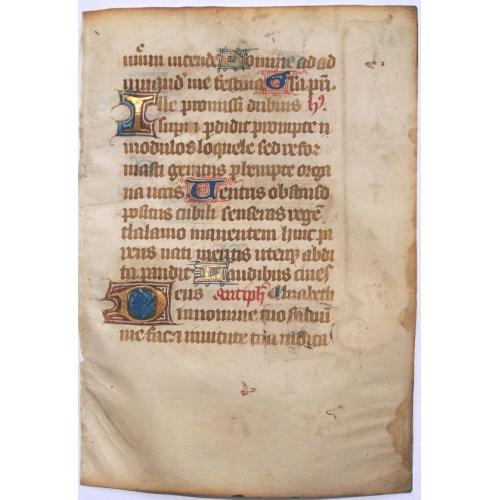 mūm intend Domine ad ad
iuuand me festina Gła pri.
Ille promissi dubius h̄.
supni pdidit prompte
modulos loquele sed refor
masti genitus pempte orga
na uocis Uentris obstruso
positus cubili senseras regē
thalamo manentem hinc pa
rens nati meritis uterq; abdi
ta pandit Laudibus ciues
Deus Antiph Elizabeth
in nomine tuo saluū
me fac ⁊ in uirtute tua iudica